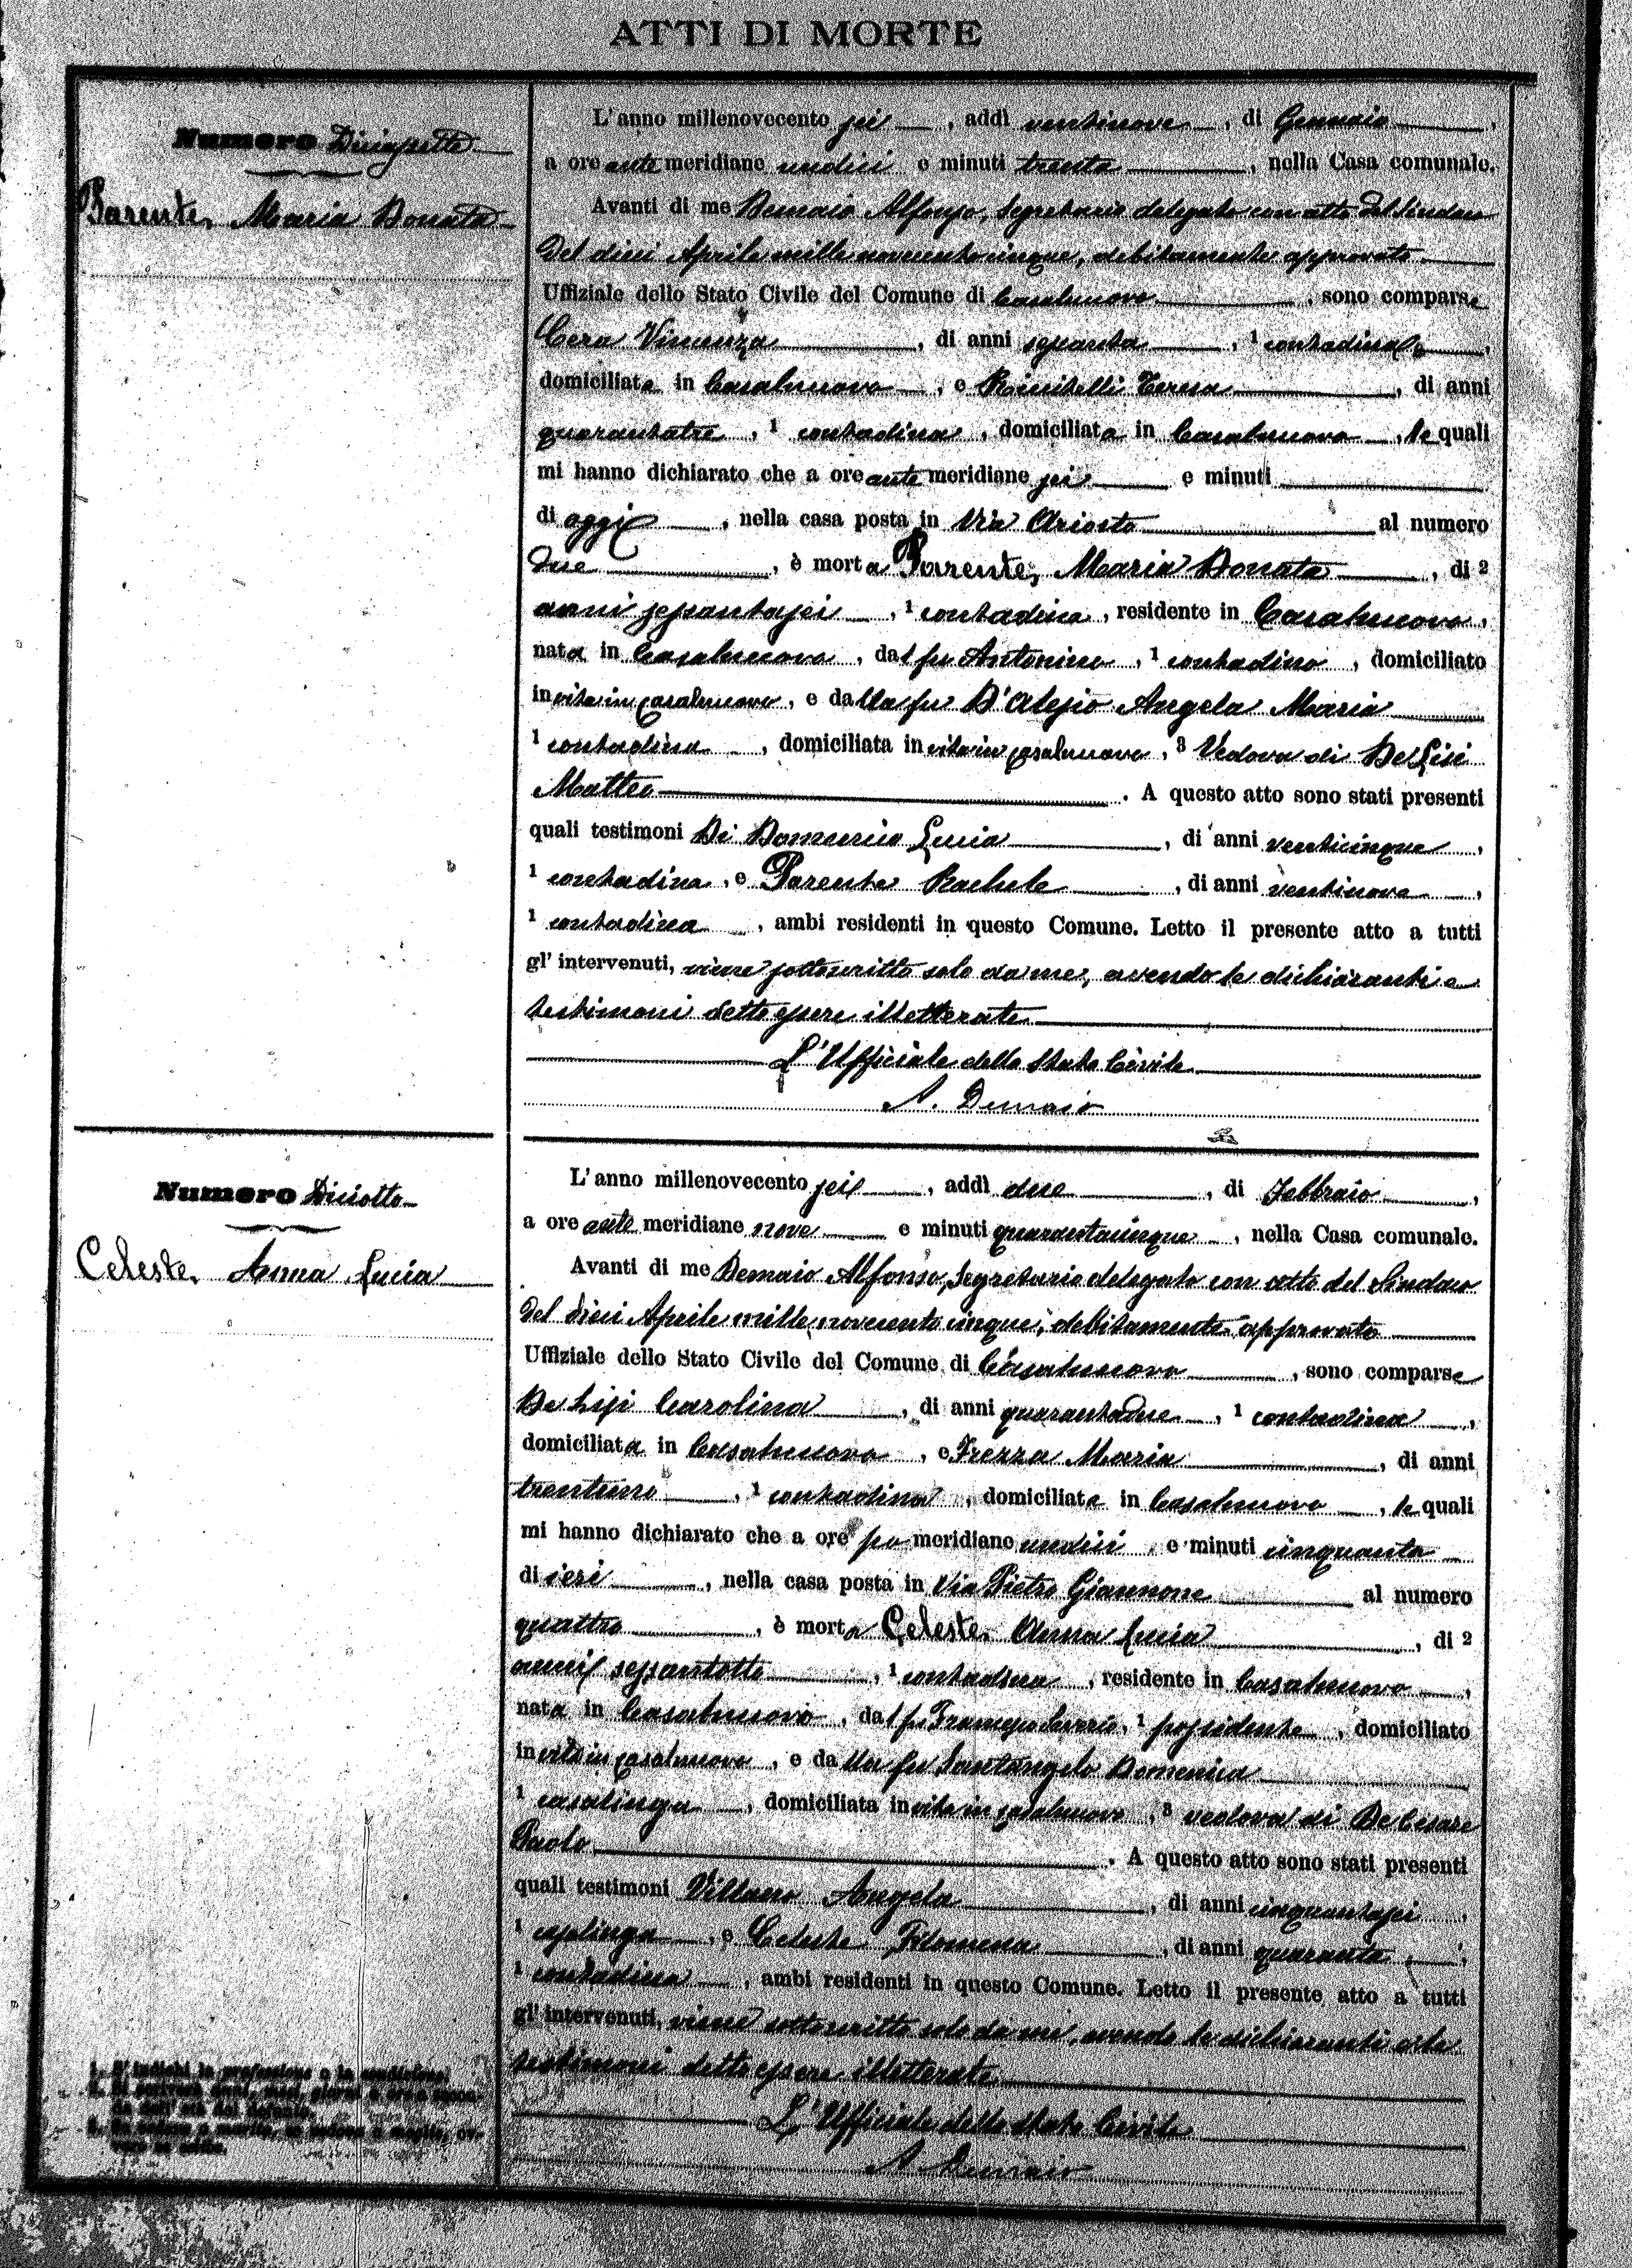 ATTI DI MORTE
Numero Diciassette
Parente, Maria Donata
L'anno millenovecento sei, addì ventinove, di Gennaio,
a ore ante meridiane undici e minuti trenta, nella Casa comunale.
Avanti di me Demaio Alfonso, Segretario delegato con atto del Sindaco
del dieci Aprile mille novecento cinque, debitamente approvato
Uffiziale dello Stato Civile del Comune di Casalnuovo, sono comparse
Cera Vincenza, di anni sessanta, 1 contadina,
domiciliata in Casalnuovo, e Teresa, di anni
quarantatre, 1 contadina, domiciliata in Casalnuovo, le quali
mi hanno dichiarato che a ore ante meridiane sei e minuti
di oggi, nella casa posta in Via Ariosto al numero
due, è morta Parente, Maria Donata, di 2
anni sessantasei, 1 contadina, residente in Casalnuovo,
nata in Casalnuovo, dal fu Antonino, 1 contadino, domiciliato
in vita in Casalnuovo, e dalla fu D'Alesio Angela Maria
1 contadina, domiciliata in vita in Casalnuovo, 3 Vedova di De Lisi
Matteo. A questo atto sono stati presenti
quali testimoni Di Domenico Lucia, di anni venticinque,
1 contadina, e Parente Rachele, di anni ventinove,
1 contadina, ambi residenti in questo Comune. Letto il presente atto a tutti
gl'intervenuti, viene sottoscritto solo da me, avendo le dichiaranti e
testimoni detto essere illetterate
L'Ufficiale dello Stato Civile
A. Demaio
Numero Diciotto
Celeste, Anna Lucia
L'anno millenovecento sei, addì due, di Febbraio,
a ore ante meridiane nove e minuti quarantacinque, nella Casa comunale.
Avanti di me Demaio Alfonso, Segretario delegato con atto del Sindaco
del dieci Aprile mille novecento cinque, debitamente approvato
Uffiziale dello Stato Civile del Comune di Casalnuovo, sono comparse
De Lisi Carolina, di anni quarantadue, 1 contadina,
domiciliata in Casalnuovo, e Frezza Maria, di anni
trentuno, 1 contadina, domiciliata in Casalnuovo, le quali
mi hanno dichiarato che a ore po meridiane undici e minuti cinquanta
di ieri, nella casa posta in Via Pietro Giannone al numero
quattro, è morta Celeste, Anna Lucia, di 2
anni sessantotto, 1 contadina, residente in Casalnuovo,
nata in Casalnuovo, dal fu Francesco Saverio, 1 possidente, domiciliato
in vita in Casalnuovo, e dalla fu Santangelo Domenica
1 casalinga, domiciliata in vita in Casalnuovo, 3 vedova di De Cesare
Paolo. A questo atto sono stati presenti
quali testimoni Villano Angela, di anni cinquantasei,
1 casalinga, e Celeste Filomena, di anni quaranta,
1 contadina, ambi residenti in questo Comune. Letto il presente atto a tutti
gl'intervenuti, viene sottoscritto solo da me, avendo le dichiaranti e le
testimoni detto essere illetterate
L'Ufficiale dello Stato Civile
A. Demaio
1. S'indichi la professione o la condizione.
2. Si scriverà anni, mesi, giorni o ore a seconda dell'età del defunto.
3. Se vedova o marito,